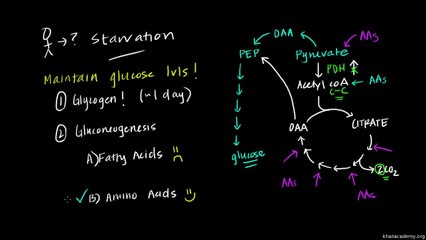 →? Starvation
Maintain glucose lvls!
① Glycogen! (~1 day)
② Gluconeogenesis
A) Fatty Acids
✓ B) Amino Acids
OAA
AAs
PEP
Pyruvate
PDH
Acetyl coA
C-C
AAs
OAA
CITRATE
glucose
2CO₂
AAs
AAs
khanacademy.org